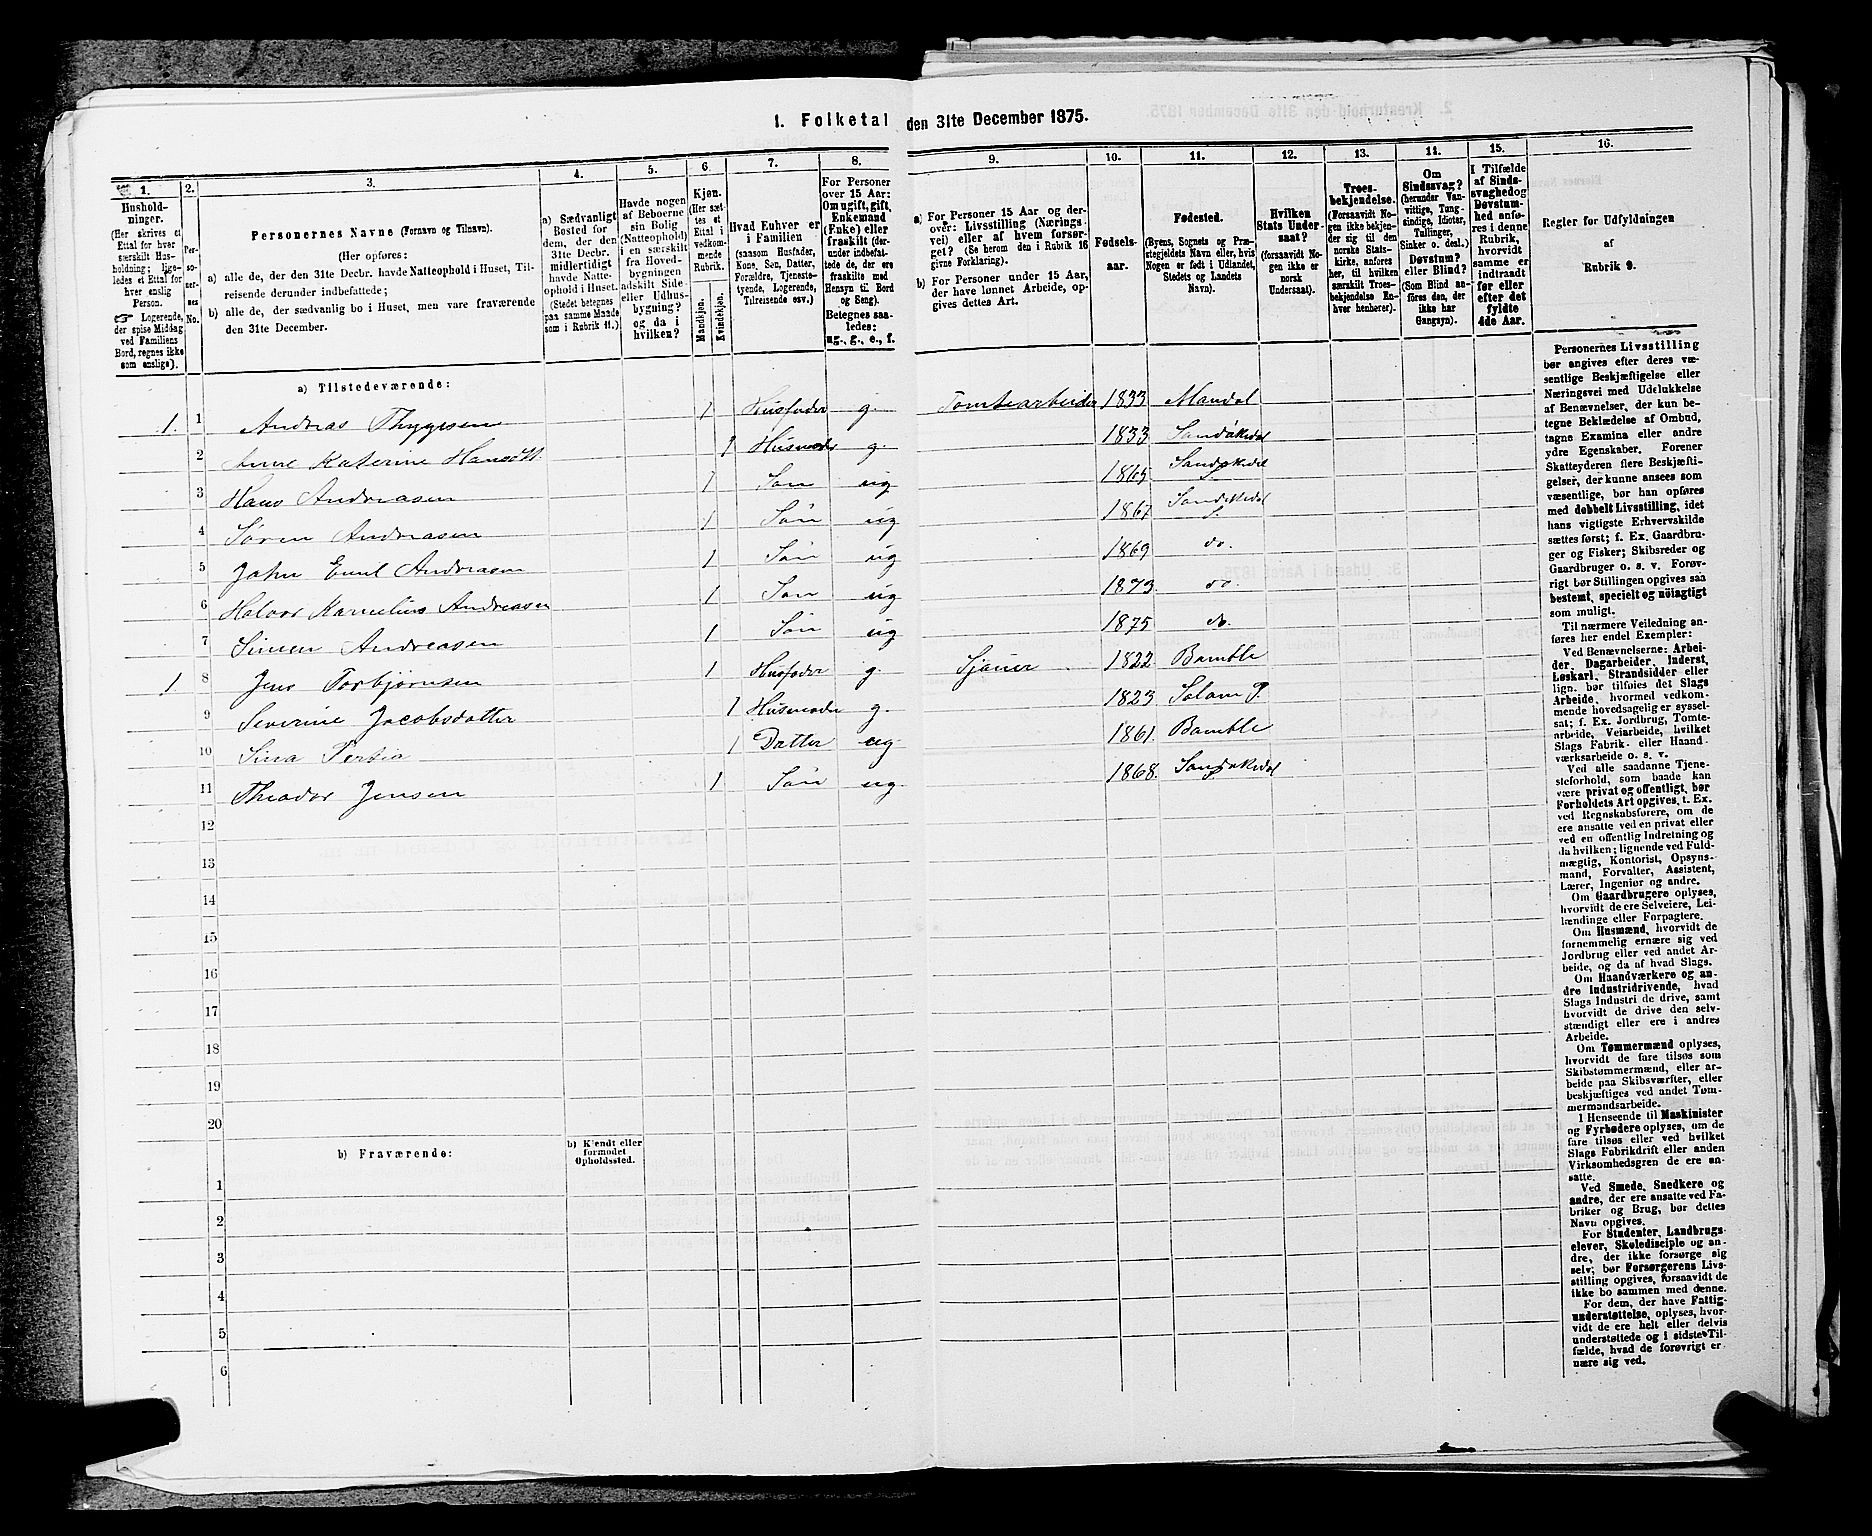 1. Folketal den 31te December 1875.
1.
2.
3.
4.
5.
6.
7.
8.
9.
10.
11.
12.
13.
14.
15.
16.
Husholdninger.
(Her skrives et
Ettal for hver
særskilt Husholdning;
ligeledes et Ettal for
hver enslig
Person.
☞ Logerende,
der spise Middag
ved Familiens
Bord, regnes ikke
som enslige).
Personernes No.
Personernes Navne (Fornavn og Tilnavn).
(Her opføres:
a) alle de, der den 31te Decbr. havde Natteophold i Huset, Tilreisende derunder indbefattede;
b) alle de, der sædvanlig bo i Huset, men vare fraværende
den 31te December.
a) Sædvanligt
Bosted for
dem, der den
31te Decbr.
midlertidigt
havde Natteophold
i Huset.
(Stedet betegnes
paa samme Maade
som i Rubrik 11.)
Havde nogen
af Beboerne
sin Bolig
(Natteophold)
i en særskilt
fra Hovedbygningen
adskilt Side
eller Udhusbygning?
og da i
hvilken?
Kjøn.
(Her sættes et
Ettal i
vedkommende
Rubrik.
Mandkjøn.
Kvindekjøn.
Hvad Enhver er
i Familien
(saasom Husfader,
Kone, Søn, Datter,
Forældre, Tjenestetyende,
Logerende,
Tilreisende osv.)
For Personer
over 15 Aar:
Om ugift, gift,
Enkemand
(Enke) eller
fraskilt (derunder
indbefattede
de, der ere
fraskilte med
Hensyn til Bord
og Seng).
Betegnes saaledes:
ug., g., e., f.
a) For Personer 15 Aar og derover:
Livsstilling (Næringsvei)
eller af hvem forsørget?
(Se herom den i Rubrik 16
givne Forklaring).
b) For Personer under 15 Aar,
der have lønnet Arbeide, opgives
dettes Art.
Fødselsaar.
Fødested.
(Byens, Sognets og Præstegjeldets
Navn eller, hvis
Nogen er født i Udlandet,
Stedets og Landets
Navn).
Hvilken
Stats Undersaat?
(forsaavidt Nogen
ikke er
norsk
Undersaat).
Troesbekjendelse.
(Forsaavidt Nogen
ikke bekjender
sig til den
norske Statskirke,
anføres
her, til hvilken
særskilt Troesbekjendelse
Enhver henhører).
Om
Sindssvag?
(herunder Vanvittige,
Tungsindige,
Idioter,
Tullinger,
Sinker o. desl.)
Døvstum?
eller Blind?
(Som Blind anføres
den, der
ikke har
Gangsyn).
I Tilfælde
af Sindssvaghed og
Døvstumhed
anføres
i denne
Rubrik,
hvorvidt
samme er
indtraadt
før eller
efter det
fyldte
4de Aar.
Regler for Udfyldningen
af
Rubrik 9.
a) Tilstedeværende:
1. 1 Andreas Thygesen 1 Husfader g. Tomtearbeider 1833 Mandal
2 Anne Katerine Hansdtt. 1 Husmoder g. 1833 Sandøkedal
3 Hans Andreasen 1 Søn ug 1865 Sandøkedal
4 Søren Andreasen 1 Søn ug 1867 Sandøkedal
5 John Emil Andreasen 1 Søn ug 1869 do.
6 Halvor Kornelius Andreasen 1 Søn ug 1873 do.
7 Simen Andreasen 1 Søn ug 1875 do.
1 8 Jens Torbjørnsen 1 Husfader g. Sjauer 1822 Bamble
9 Severine Jacobsdatter 1 Husmoder g. 1823 Solum P.
10 Sina Tertia 1 Datter ug 1861. Bamble
11 Theodor Jensen 1 Søn ug. 1868. Sandøkedal
12
13
14
15
16
17
18
19
20
b) Fraværende:
b) Kjendt eller
formodet
Opholdssted.
1
2
3
4
5
6
Personernes Livsstilling
bør angives efter deres væsentlige
Beskjæftigelse eller
Næringsvei med Udelukkelse
af Benævnelser, der kun betegne
Beklædelse af Ombud,
tagne Examina eller andre
ydre Egenskaber. Forener
Skatteyderen flere Beskjæftigelser,
der kunne ansees som
væsentlige, bør han opføres
med dobbelt Livsstilling, idet
hans vigtigste Erhvervskilde
sættes først; f. Ex. Gaardbruger
og Fisker; Skibsreder og
Gaardbruger o. s. v. Forøvrigt
bør Stillingen opgives saa
bestemt, specielt og nöiagtigt
som muligt.
Til nærmere Veiledning anføres
her endel Exempler:
Ved Benævnelserne: Arbeider,
Dagarbeider, Inderst,
Løskarl, Strandsidder eller
lign. bør tilføies det Slags
Arbeide, hvormed vedkommende
hovedsagelig er sysselsat;
f. Ex. Jordbrug, Tomtearbeide,
Veiarbeide, hvilket
Slags Fabrik- eller Haandværksarbeide
o. s. v.
Ved alle saadanne Tjenesteforhold,
som baade kan
være privat og offentligt, bør
Forholdets Art opgives, t. Ex.
ved Regnskabsførere, om de
ere ansatte ved en privat eller
ved en offentlig Indretning og
da hvilken; lignende ved Fuldmægtig,
Kontorist, Opsynsmand,
Forvalter, Assistent,
Lærer, Ingeniør og andre.
Om Gaardbrugere oplyses,
hvorvidt de ere Selveiere, Leilændinge
eller Forpagtere.
Om Husmænd, hvorvidt de
fornemmelig ernære sig ved
Jordbrug eller ved andet Arbeide,
og da af hvad Slags.
Om Haandværkere og andre
Industridrivende, hvad
Slags Industri de drive, samt
hvorvidt de drive den selvstændigt
eller ere i andres
Arbeide.
Om Tømmermænd oplyses,
hvorvidt de fare tilsøs som
Skibstømmermænd, eller arbeide
paa Skibsværfter, eller
beskjæftiges ved andet Tømmermandsarbeide.
I Henseende til Maskinister
og Fyrbødere oplyses, om de
fare tilsøs eller ved hvilket
Slags Fabrikdrift eller anden
Virksomhedsgren de ere ansatte.
Ved Smede, Snedkere og
andre, der ere ansatte ved Fabriker
og Brug, bør dettes
Navn opgives.
For Studenter, Landbrugselever,
Skoledisciple og andre,
der ikke forsørge sig
selv; bør Forsørgerens Livsstilling
opgives, forsaavidt de
ikke bo sammen med denne.
For dem, der have Fattigunderstøttelse,
oplyses, hvorvidt
de ere helt eller delvis
understøttede og i sidste Tilfælde,
hvad de forøvrigt ernære
sig ved.